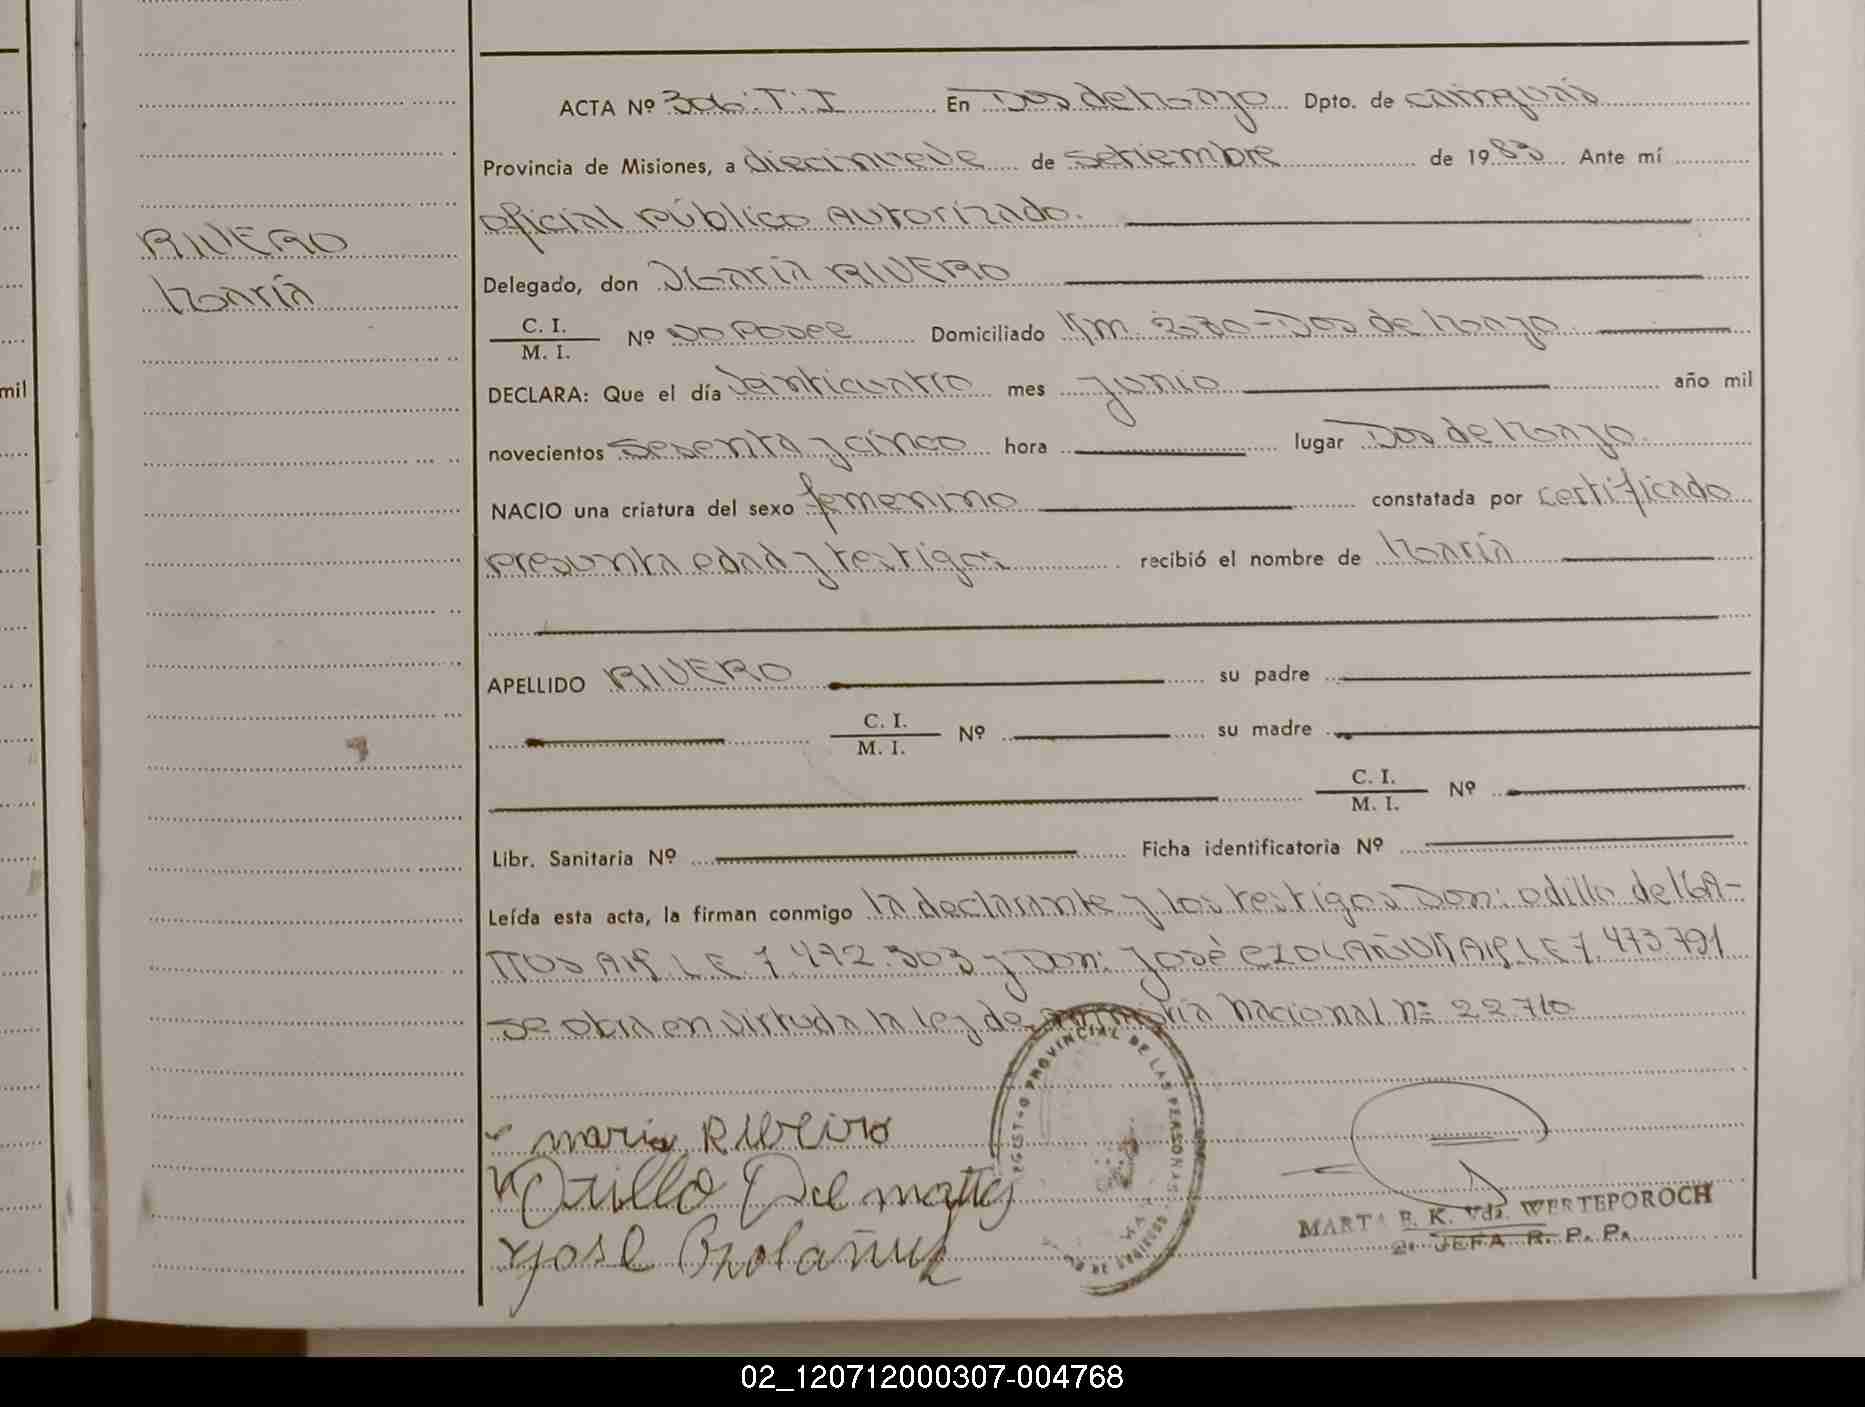 mil
RIVERO
María
ACTA Nº 306. T. I En Dos de Mayo Dpto. de Cainguás
Provincia de Misiones, a diecinueve de setiembre de 1983 Ante mí
oficial público autorizado.
Delegado, don María RIVERO
C. I.
M. I. Nº no posee Domiciliado Km. 280 - Dos de Mayo
DECLARA: Que el día veinticuatro mes junio año mil
novecientos sesenta y cinco hora lugar Dos de Mayo
NACIO una criatura del sexo femenino constatada por certificado
presunta edad y testigos recibió el nombre de María
APELLIDO RIVERO su padre
C. I.
M. I. Nº su madre
C. I.
M. I. Nº
Libr. Sanitaria Nº Ficha identificatoria Nº
Leída esta acta, la firman conmigo la declarante y los testigos Don: Odillo del MA-
TTOS L E 7.492.303 y Don: José L E 7.473.791
se obra en virtud a la ley de amnistía nacional nº 22.710
maria Ribeiro
Odillo Del mattos
José
REGISTRO PROVINCIAL DE LAS PERSONAS
MARTA E. K. Vda. WERTEPOROCH
JEFA R. P. P.
02_120712000307-004768